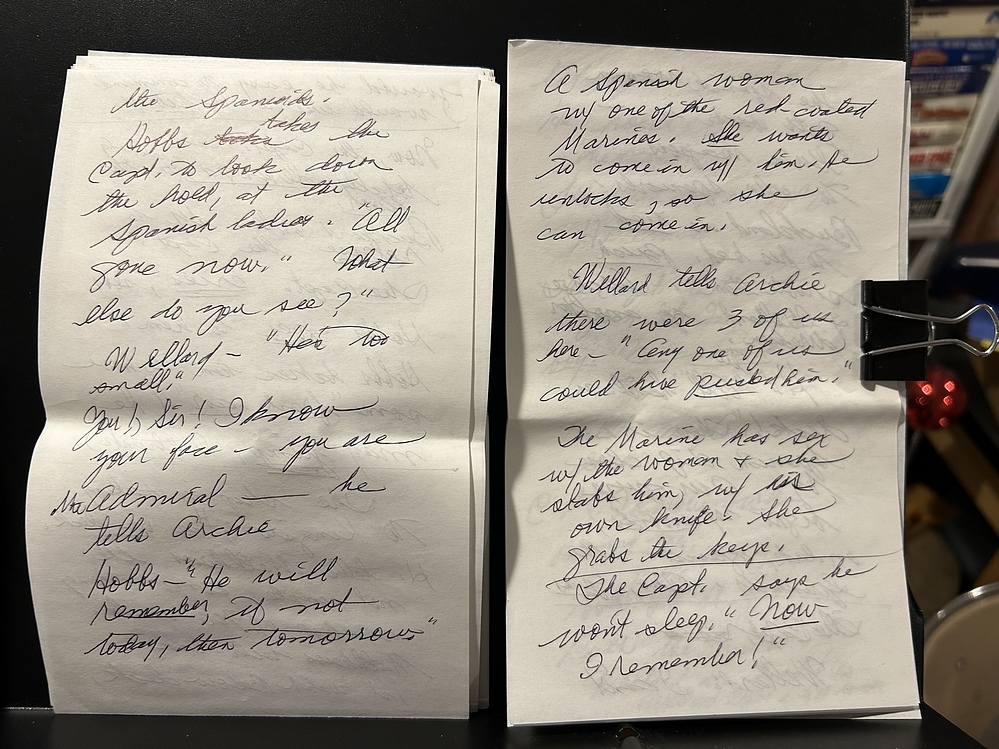 the Spaniards.
Hobbs takes the
Capt. to look down
the hold, at the
Spanish ladies. "All
gone now." What
else do you see?"
Wellard - "He's too
small."
You, Sir! I know
your face - you are
Mr. Admiral ___ he
tells Archie
Hobbs - "He will
remember, if not
today, then tomorrow."
A Spanish woman
w/ one of the red-coated
Marines. She wants
to come in w/ him. He
unlocks, so she
can come in.
Wellard tells Archie
there were 3 of us
here - "Any one of us
could hve pushed him."
The Marine has sex
w/ the woman & she
stabs him, w/ his
own knife. She
grabs the keys.
The Capt. says he
won't sleep. "Now
I remember!"